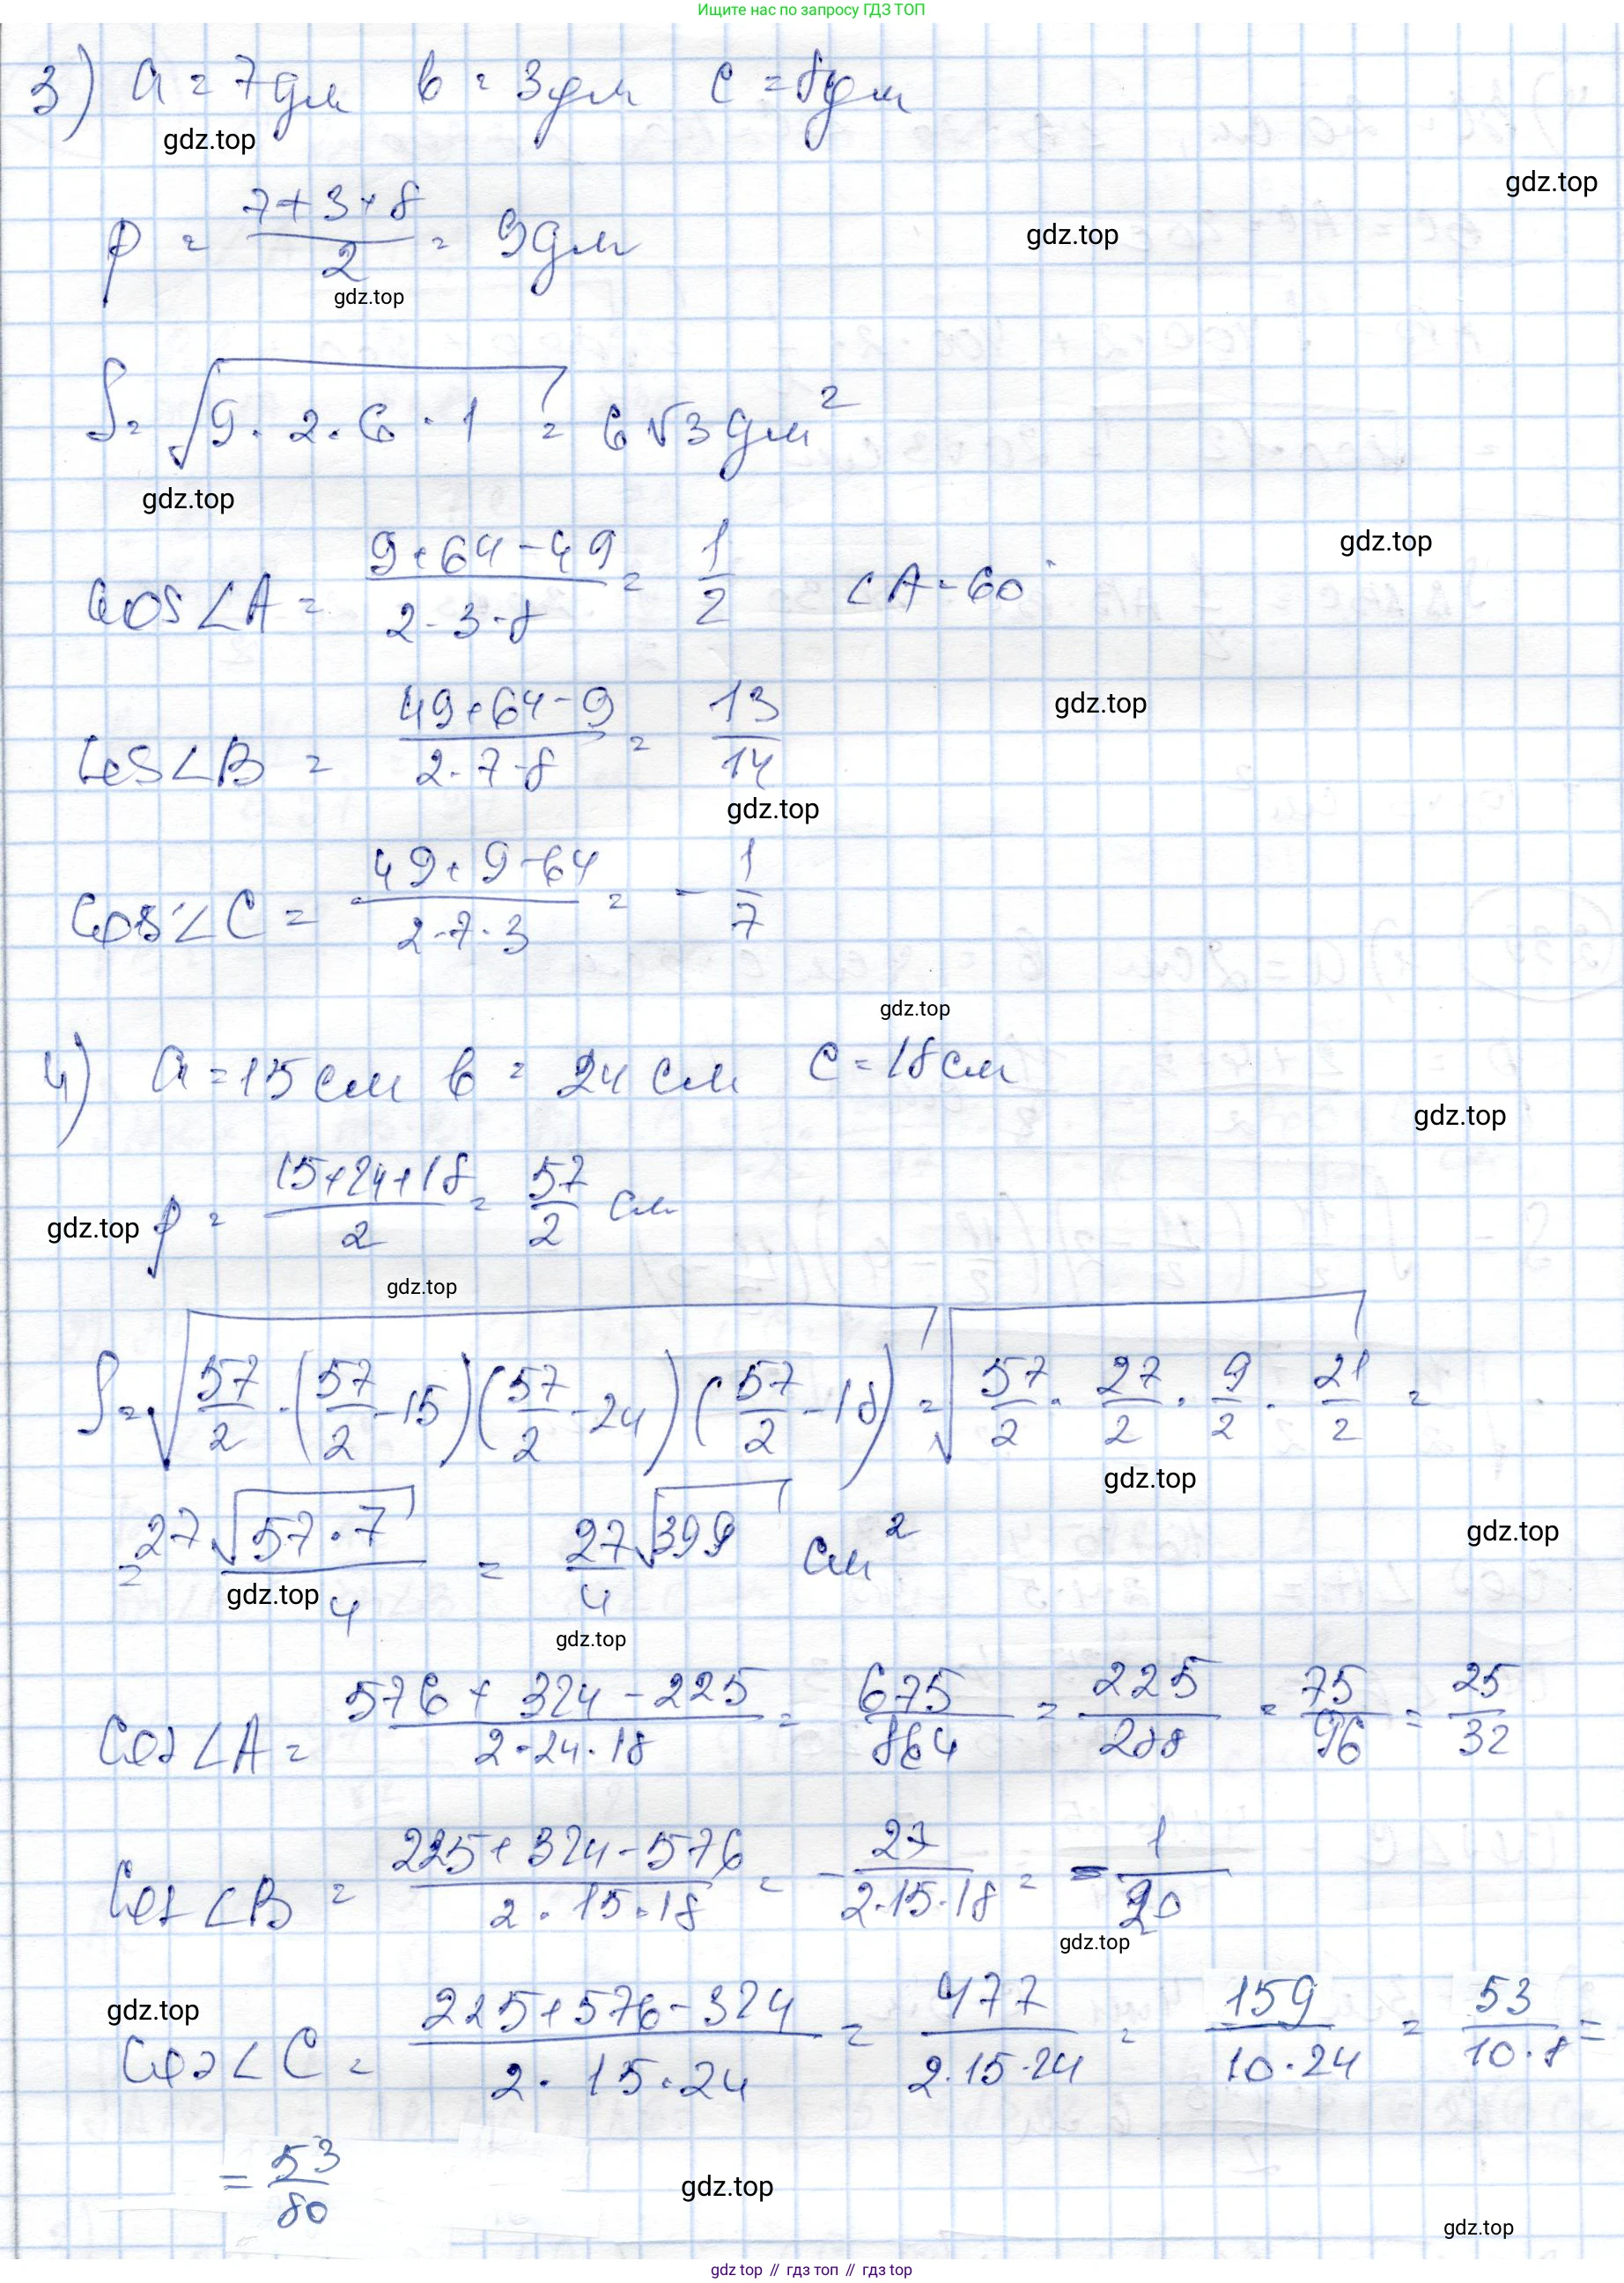 Ищите нас по запросу ГДЗ ТОП
3) a = 7дм b = 3дм c = 8дм
gdz.top
gdz.top
p = (7+3+8)/2 = 9дм
gdz.top
gdz.top
S = √(9·2·6·1) = 6√3 дм²
gdz.top
gdz.top
cos∠A = (9+64-49)/(2·3·8) = 1/2 ∠A = 60°
cos∠B = (49+64-9)/(2·7·8) = 13/14
gdz.top
gdz.top
cos∠C = (49+9-64)/(2·7·3) = -1/7
gdz.top
4) a = 15 см b = 24 см c = 18 см
gdz.top
gdz.top p = (15+24+18)/2 = 57/2 см
gdz.top
S = √(57/2·(57/2-15)(57/2-24)(57/2-18)) = √(57/2·27/2·9/2·21/2) =
gdz.top
= 27√(57·7)/4 = 27/4 √399 см²
gdz.top
gdz.top
gdz.top
cos∠A = (576+324-225)/(2·24·18) = 675/864 = 225/288 = 75/96 = 25/32
cos∠B = (225+324-576)/(2·15·18) = -27/(2·15·18) = -1/20
gdz.top
gdz.top
cos∠C = (225+576-324)/(2·15·24) = 477/(2·15·24) = 159/(10·24) = 53/(10·8) =
= 53/80
gdz.top
gdz.top
gdz top // гдз топ // гдз top